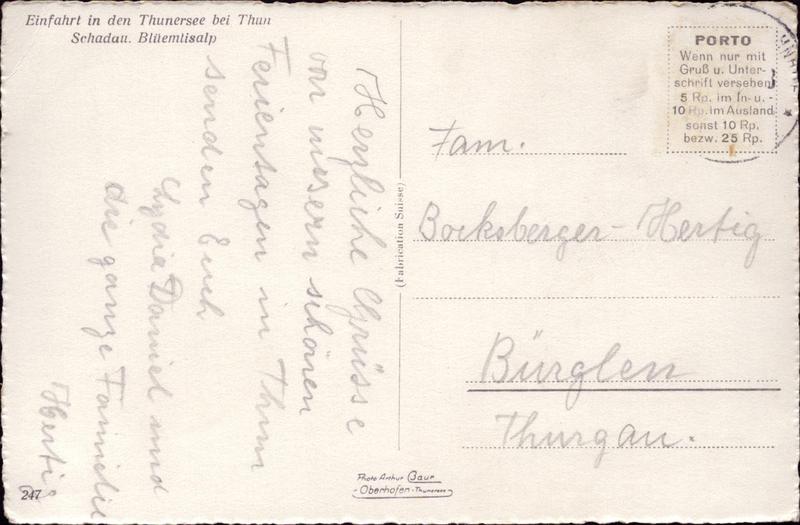 Einfahrt in den Thunersee bei Thun
Schadau. Blüemlisalp
Herzliche Grüsse
von unsern schönen
Ferientagen in Thun
senden Euch
Lydia Daniel und
die ganze Familie
Hertig
247
(Fabrication Suisse)
Photo Arthur Baur
Oberhofen-Thunersee
PORTO
Wenn nur mit
Gruß u. Unter-
schrift versehen
5 Rp. im In- u. -
10 Rp. im Ausland
sonst 10 Rp.
bezw. 25 Rp.
Fam.
Bocksberger-Hertig
Bürglen
Thurgau.